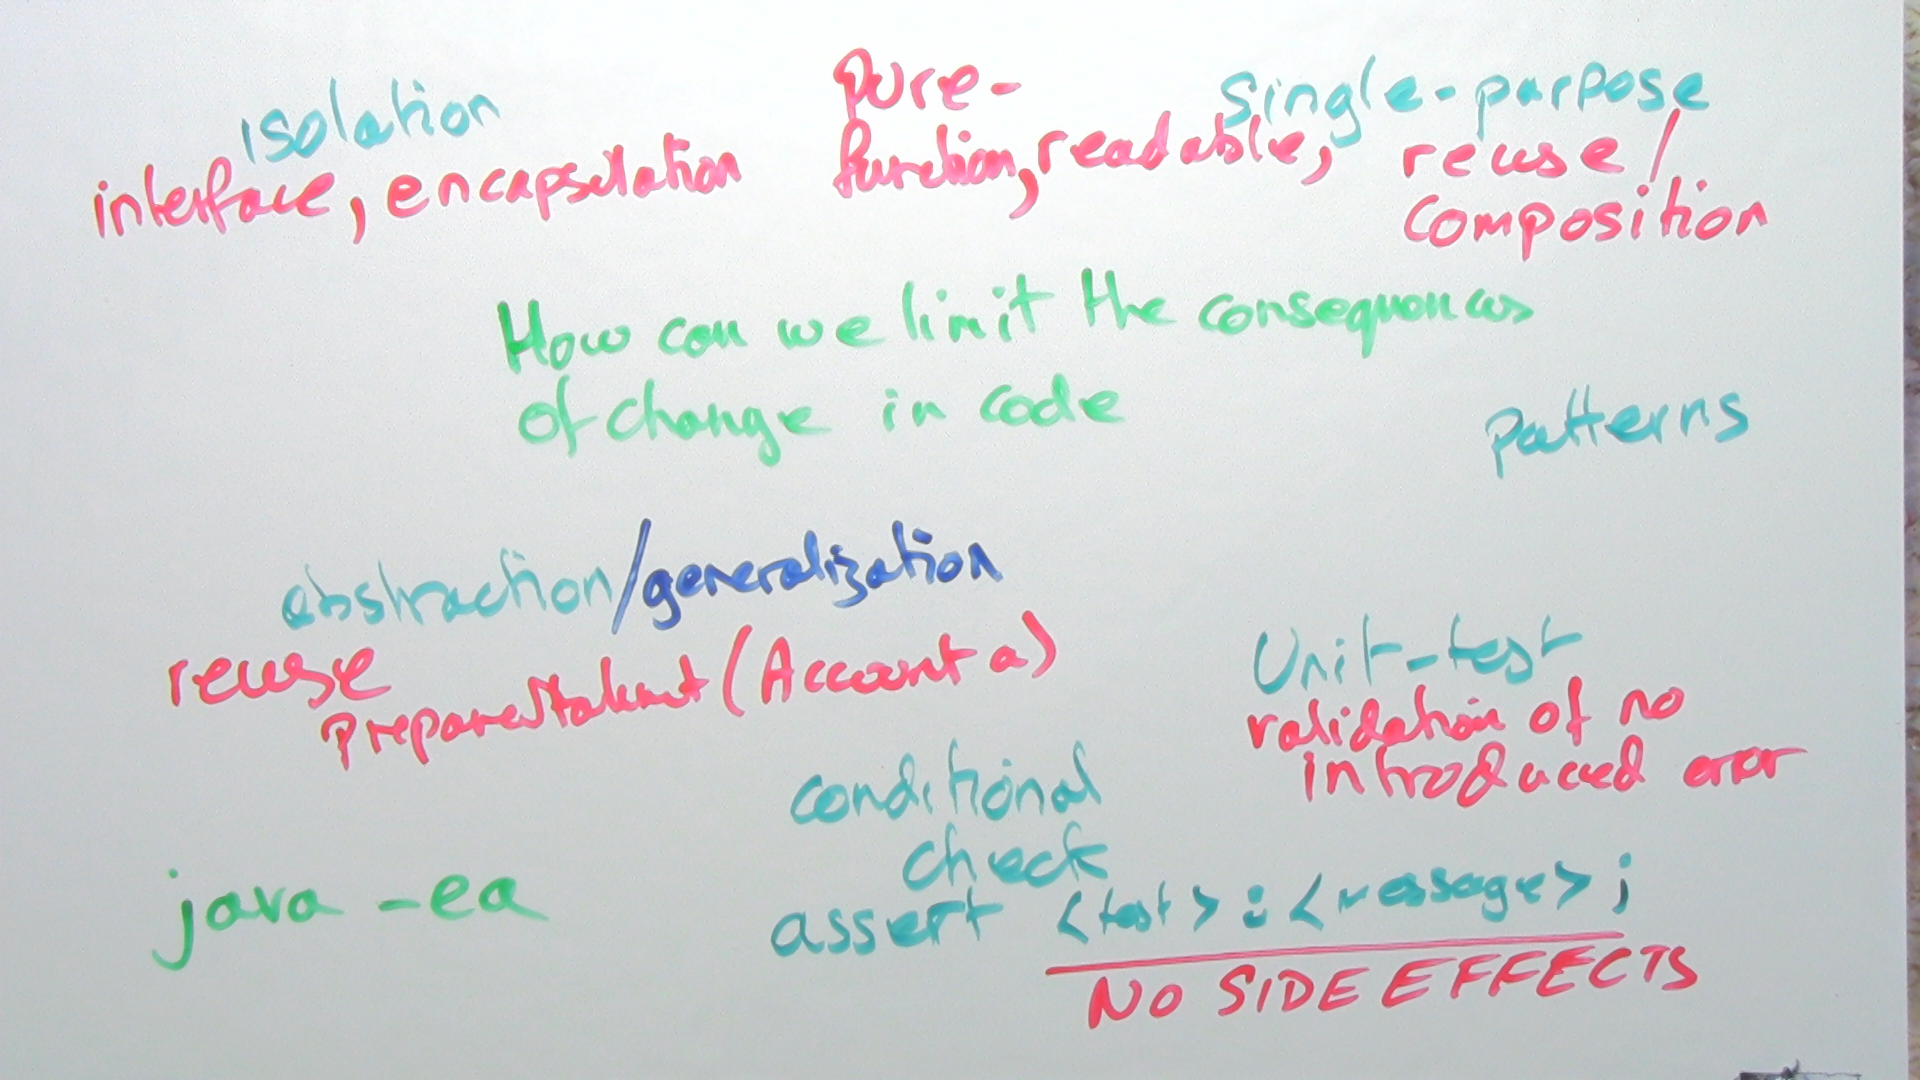 isolation
interface, encapsulation
pure-
function, readable,
single-purpose
reuse/
composition
How can we limit the consequences
of change in code
patterns
abstraction/generalization
reuse
(Account a)
Unit-test
validation of no
introduced error
conditional
check
assert <test> : <message> ;
NO SIDE EFFECTS
java -ea